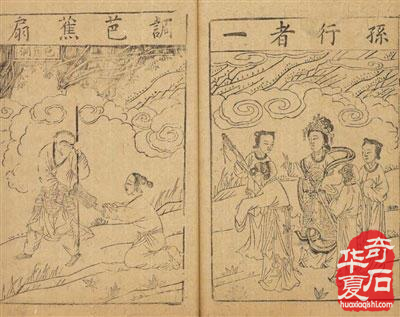 孫行者一
調芭蕉扇
芭蕉洞
华夏
奇石
huaxiaqishi.com